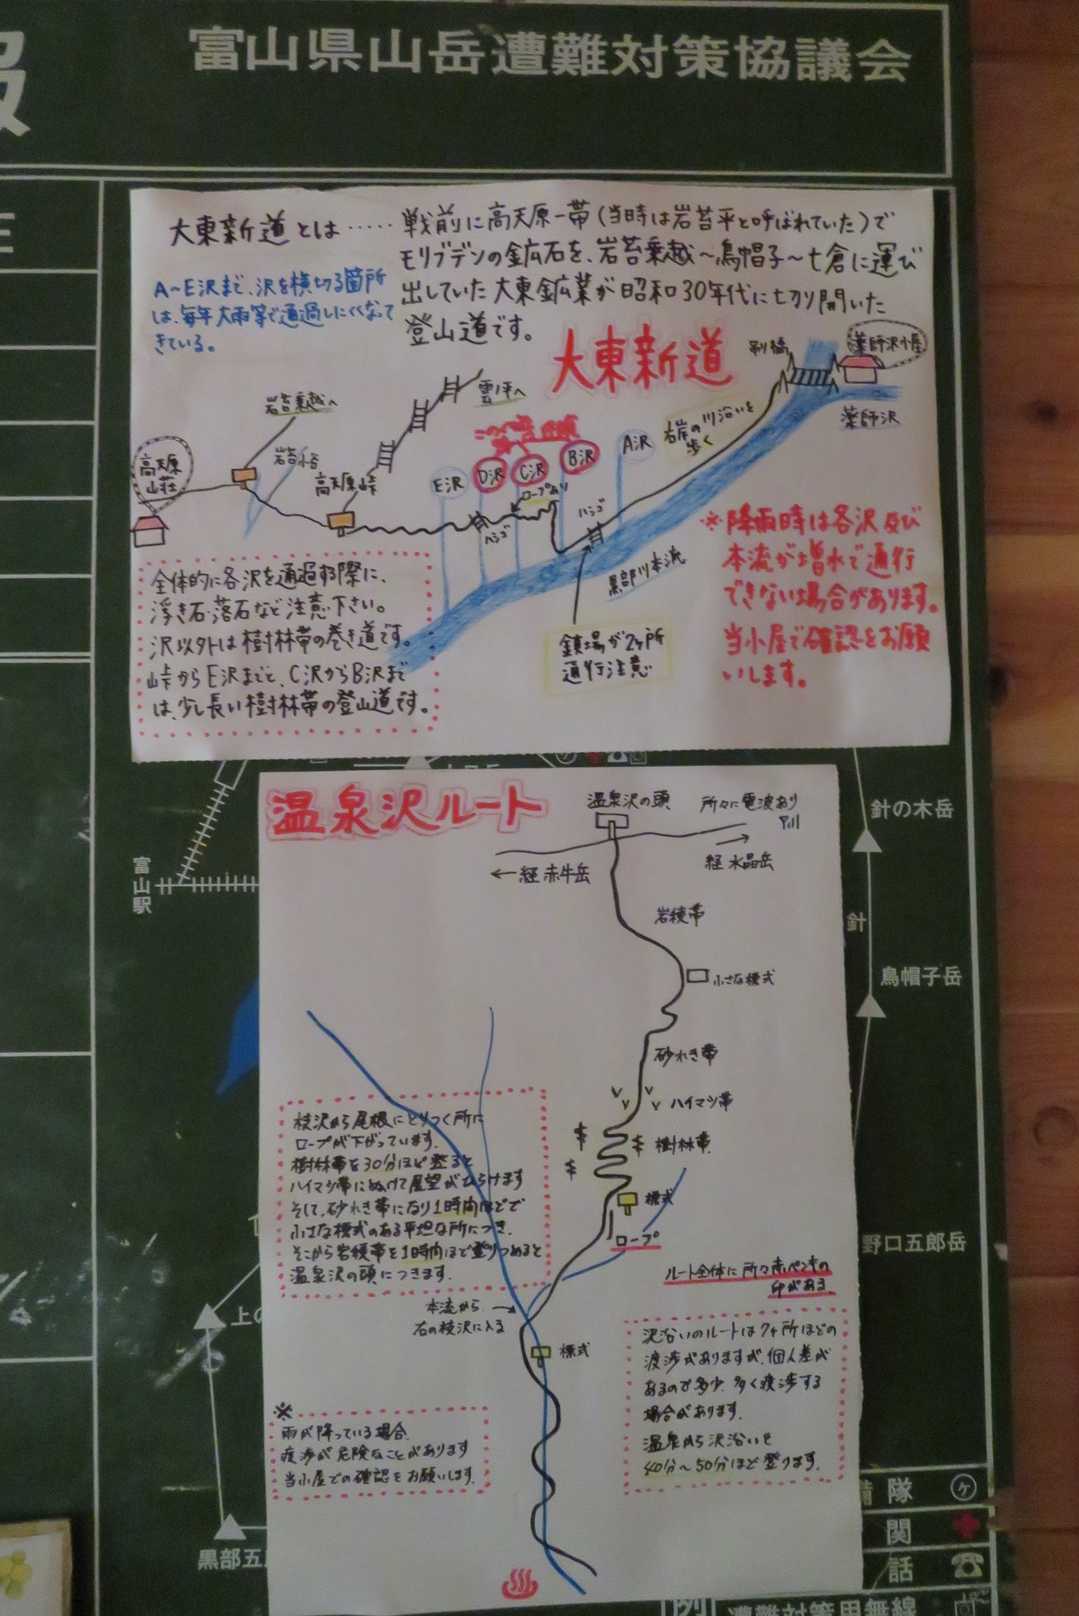 報
富山県山岳遭難対策協議会
大東新道とは……戦前に高天原一帯(当時は岩苔平と呼ばれていた)で
モリブデンの鉱石を、岩苔乗越～烏帽子～七倉に運び
出していた大東鉱業が昭和30年代に切り開いた
登山道です。
A～E沢まで、沢を横切る箇所
は、毎年大雨等で通過しにくくなって
きている。
大東新道
吊り橋
薬師沢小屋
薬師沢
雲ノ平へ
岩苔乗越へ
岩苔小谷
高天原
山荘
高天原峠
E沢
D沢
C沢
B沢
A沢
右岸の川沿いを
歩く
ロープあり
ハシゴ
ハシゴ
黒部川本流
鎖場が2ヶ所
通行注意
※降雨時は各沢及び
本流が増水で通行
できない場合があります。
当小屋で確認をお願
いします。
全体的に各沢を通過する際に、
浮き石・落石など注意下さい。
沢以外は樹林帯の巻き道です。
峠からE沢までと、C沢からB沢まで
は、少し長い樹林帯の登山道です。
温泉沢ルート
温泉沢の頭
所々に電波あり
←経赤牛岳
経水晶岳
岩稜帯
小さな標式
砂れき帯
ハイマツ帯
樹林帯
標式
ロープ
枝沢から尾根にとりつく所に
ロープが下がっています。
樹林帯を30分ほど登ると
ハイマツ帯にぬけて展望がひらけます
そして、砂れき帯になり1時間ほどで
小さな標式のある平坦な所につき、
そこから岩稜帯を1時間ほど登りつめると
温泉沢の頭につきます。
ルート全体に所々赤ペンキの
印がある。
本流から→
右の枝沢に入る
標式
沢沿いのルートは7ヶ所ほどの
渡渉がありますが、個人差が
あるので多少、多く渡渉する
場合があります。
温泉から沢沿いを
40分～50分ほど登ります。
※
雨が降っている場合、
渡渉が危険なことがあります
当小屋での確認をお願いします。
富山駅
針の木岳
針
烏帽子岳
野口五郎岳
上の
黒部五
備隊
関
話
遭難対策用無線